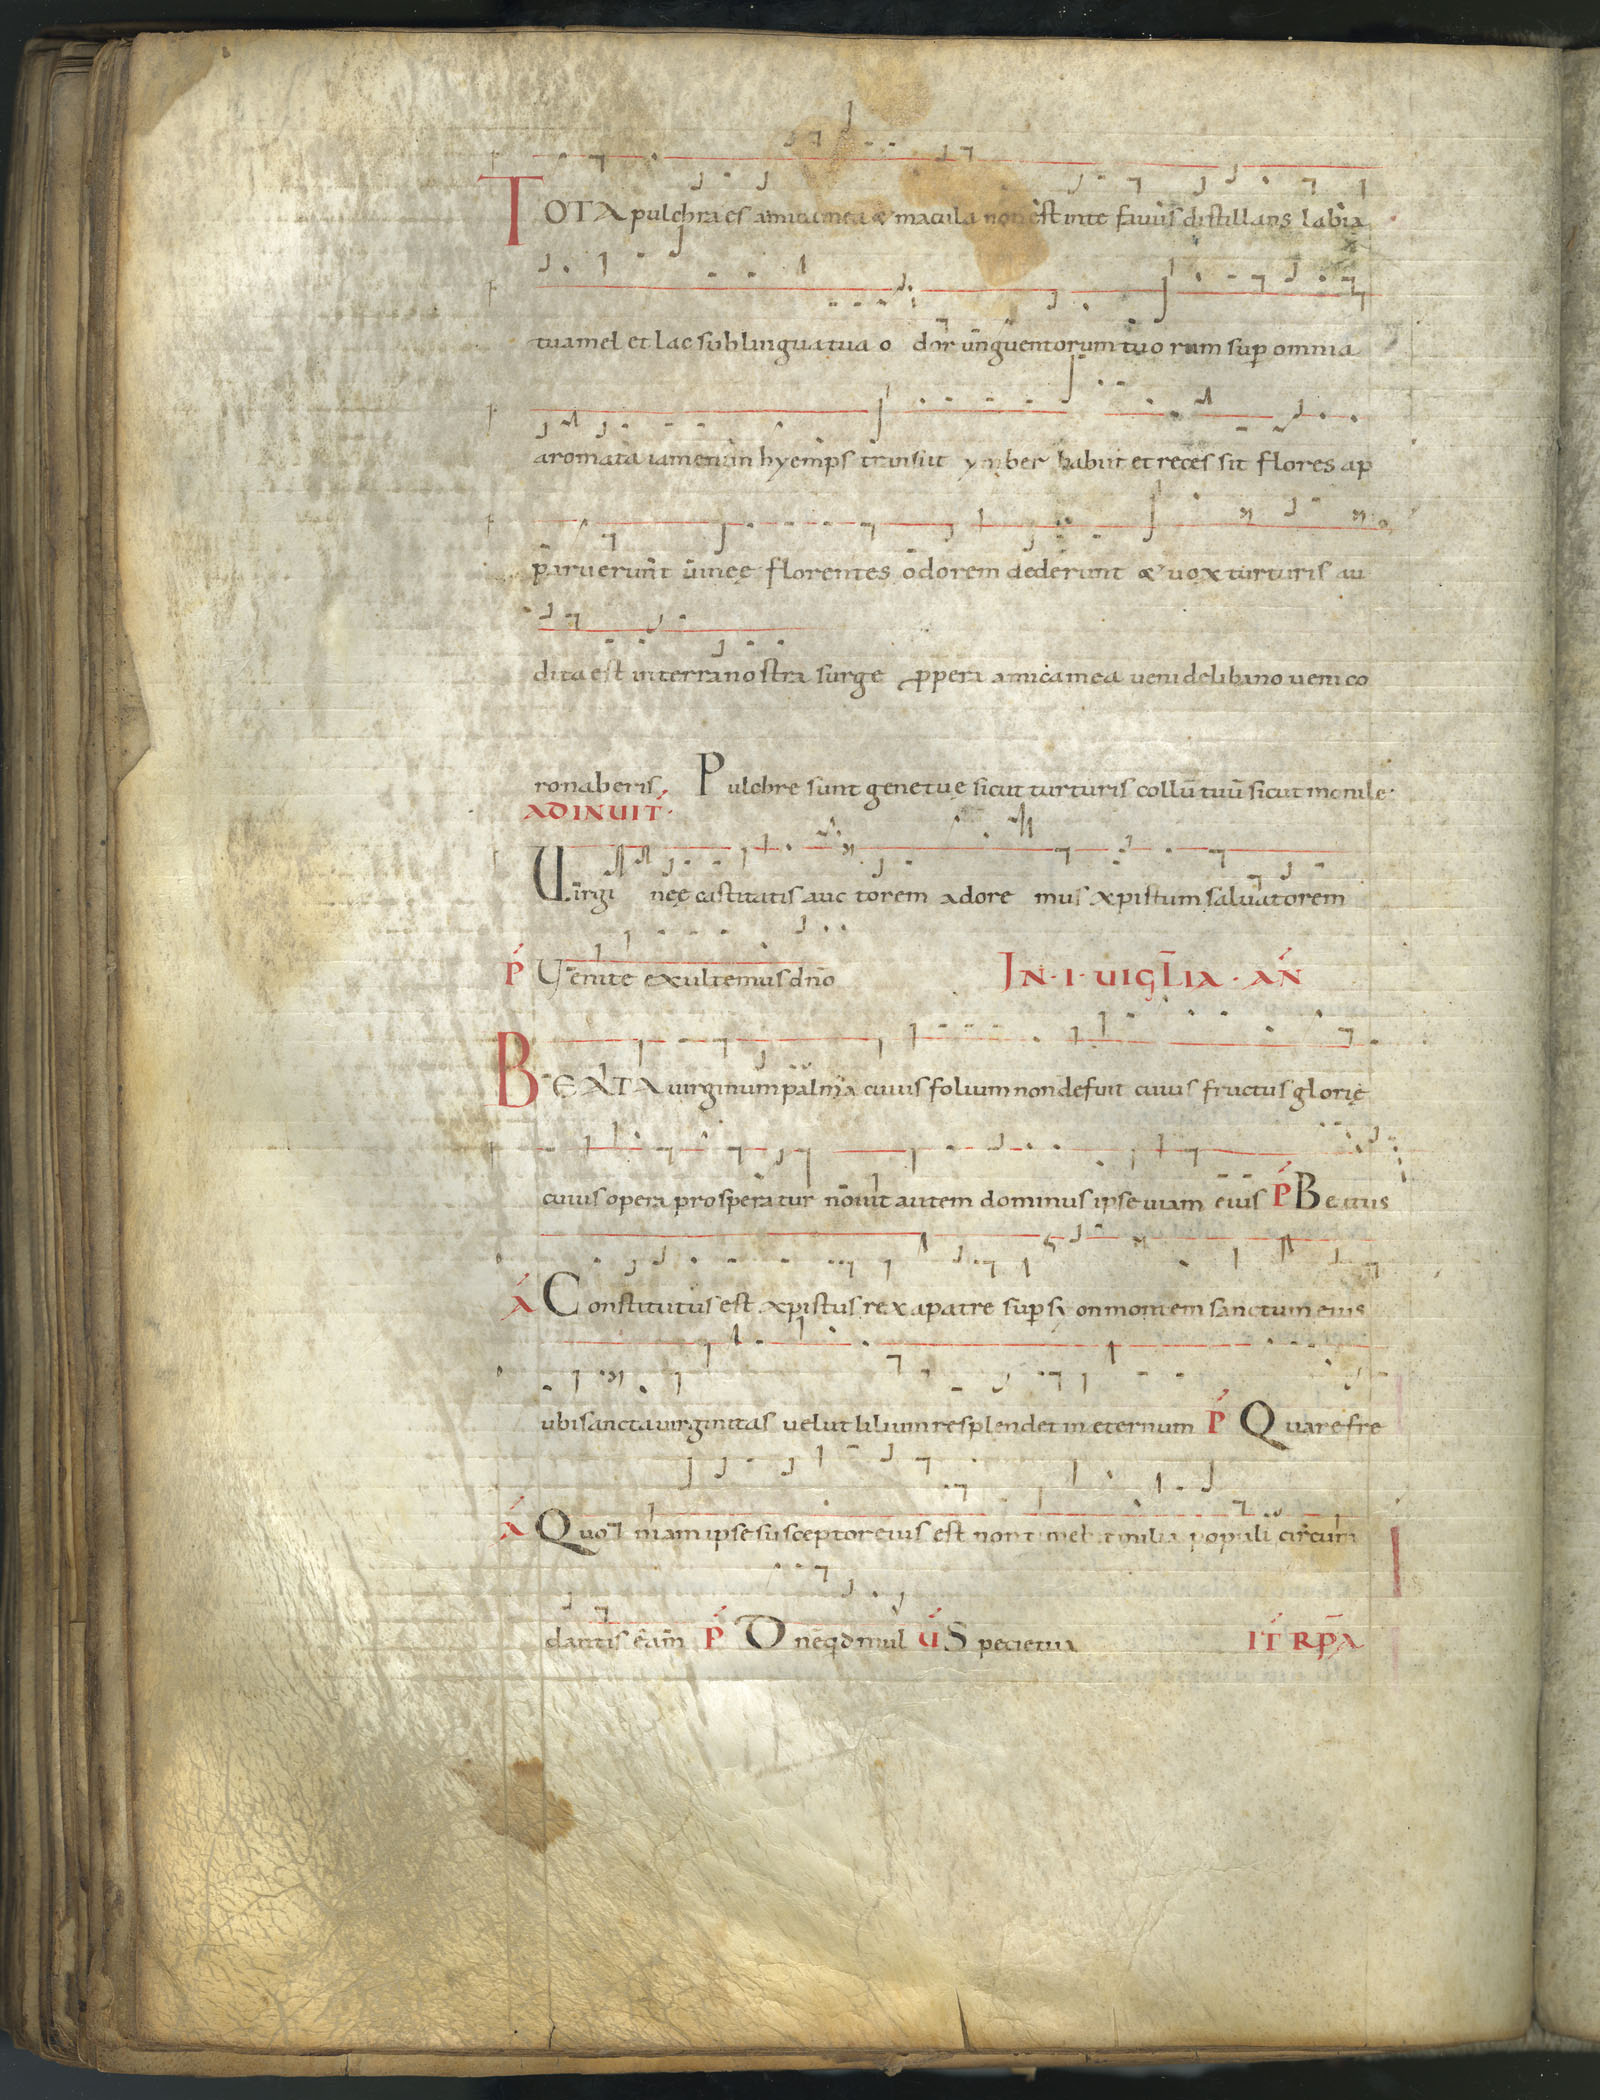 TOTA pulchra es amica mea & macula non est in te favus distillans labia
tua mel et lac sub lingua tua o dor unguentorum tuo rum sup omnia
aromata iam enim hyemps transiit ymber habiit et reces sit flores ap
paruerunt uineę florentes odorem dederunt & uox turturis au
dita est in terra nostra surge ppera amica mea ueni delibano ueni co
ronaberis. Pulchre sunt genetuę sicut turturis collū tuū sicut monile.
ADINUIT.
Uirgi neę castitatis auc torem adore mus xpistum saluatorem
P Uenite exultemus dno IN · I · UIGLIA · AN
BEATA uirginum palma cuius folium non defluit cuius fructus glorię
cuius opera prosperatur nouit autem dominus ipse uiam eius P Beatus
A Constitutus est xpistus rex a patre sup sy on montem sanctum eius
ubi sancta uirginitas uelut lilium resplendet in eternum P Quare fre
A Quo niam ipse susceptor eius est non timebit milia populi circum
dantis eam P Dne qd mul U Specie tua IT RPA